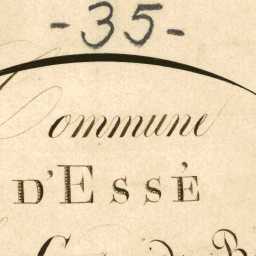 -35-
Commune
D'ESSÉ